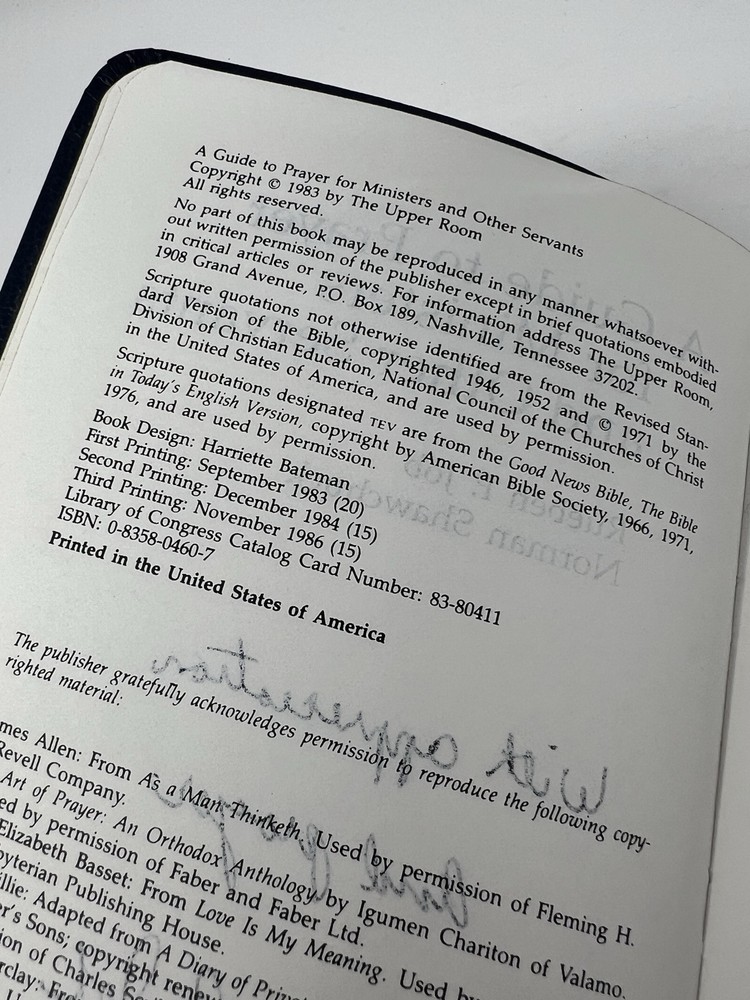 A Guide to Prayer for Ministers and Other Servants
Copyright © 1983 by The Upper Room
All rights reserved.
No part of this book may be reproduced in any manner whatsoever with-
out written permission of the publisher except in brief quotations embodied
in critical articles or reviews. For information address The Upper Room,
1908 Grand Avenue, P.O. Box 189, Nashville, Tennessee 37202.
Scripture quotations not otherwise identified are from the Revised Stan-
dard Version of the Bible, copyrighted 1946, 1952 and © 1971 by the
Division of Christian Education, National Council of the Churches of Christ
in the United States of America, and are used by permission.
Scripture quotations designated TEV are from the Good News Bible, The Bible
in Today's English Version, copyright by American Bible Society, 1966, 1971,
1976, and are used by permission.
Book Design: Harriette Bateman
First Printing: September 1983 (20)
Second Printing: December 1984 (15)
Third Printing: November 1986 (15)
Library of Congress Catalog Card Number: 83-80411
ISBN: 0-8358-0460-7
Printed in the United States of America
With appreciation
The publisher gratefully acknowledges permission to reproduce the following copy-
righted material:
Allen: From As a Man Thinketh. Used by permission of Fleming H.
Revell Company.
Art of Prayer: An Orthodox Anthology by Igumen Chariton of Valamo.
by permission of Faber and Faber Ltd.
Elizabeth Basset: From Love Is My Meaning. Used by
Publishing House.
Adapted from A Diary of
Sons; copyright
of Charles